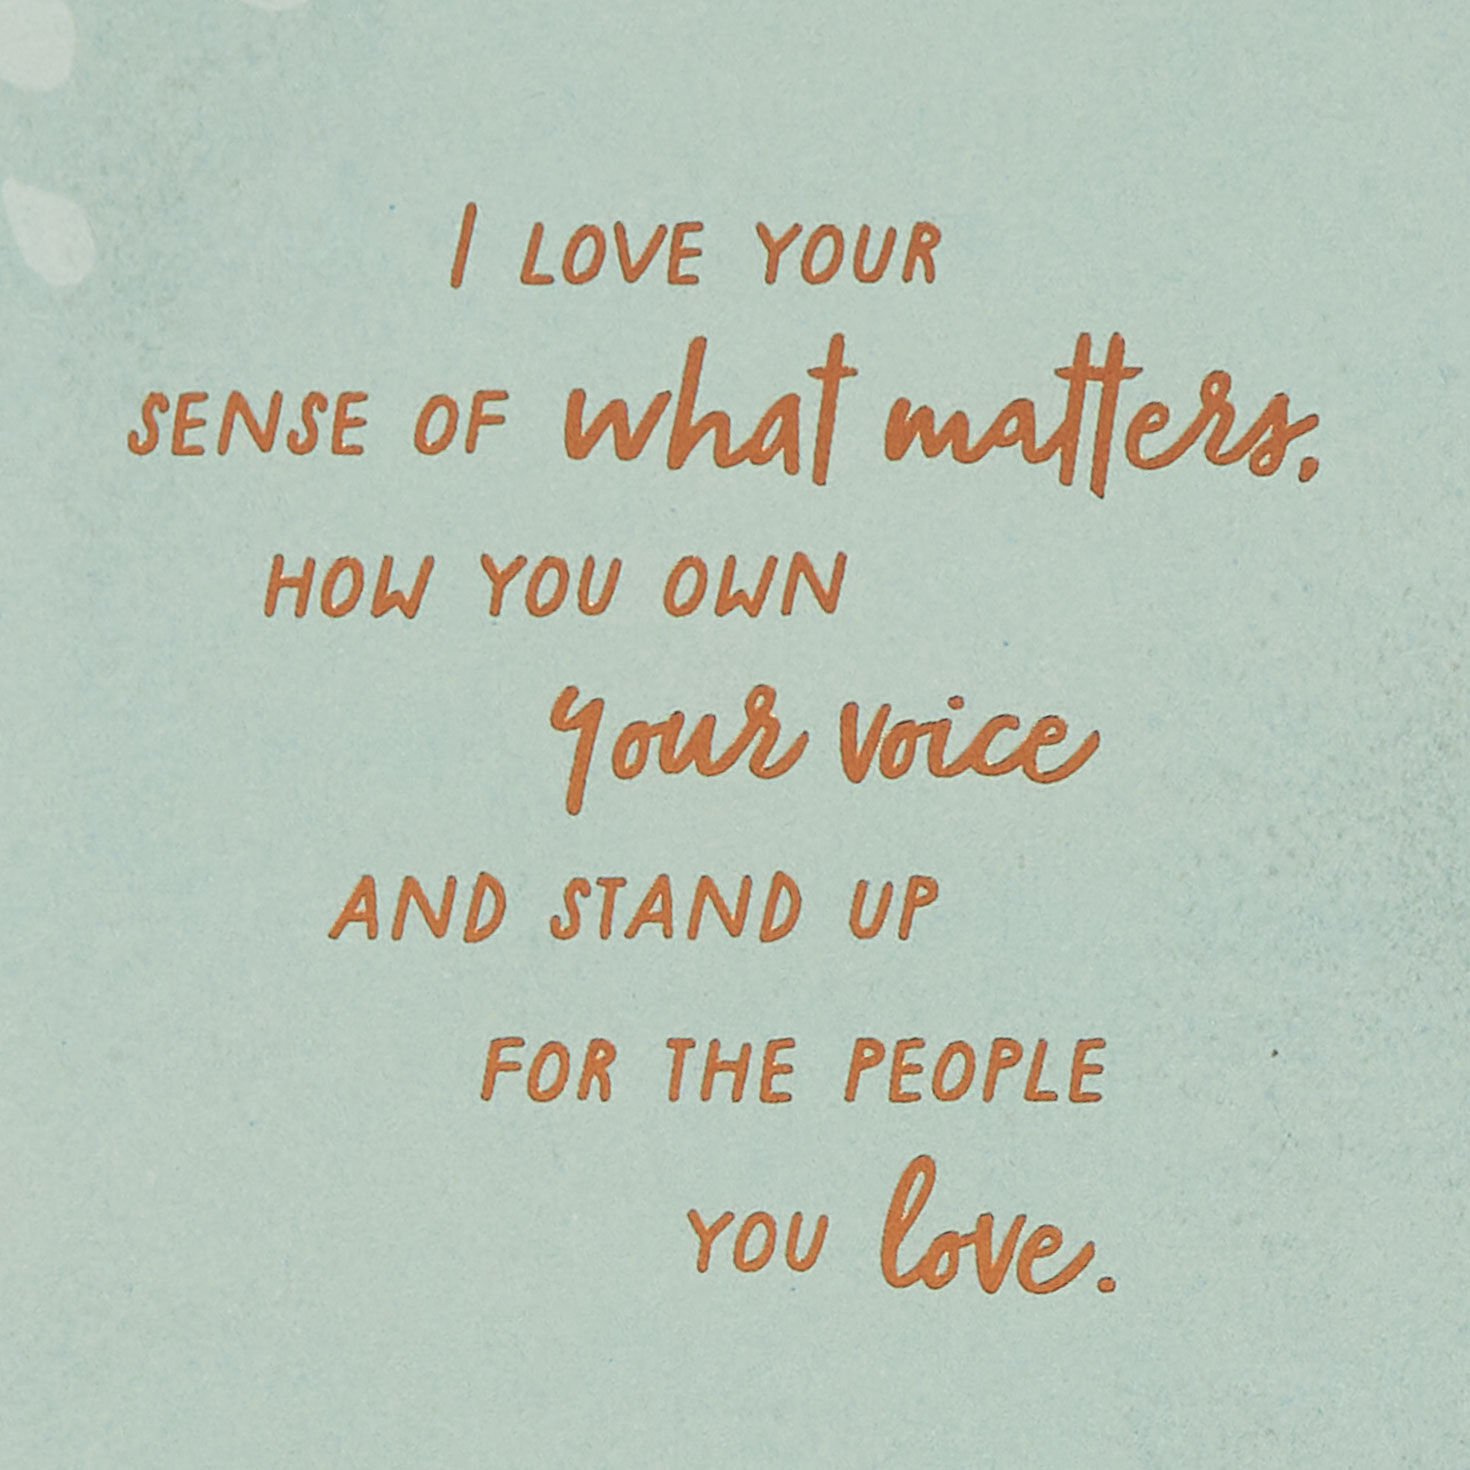 I LOVE YOUR
SENSE OF what matters.
HOW YOU OWN
your voice
AND STAND UP
FOR THE PEOPLE
YOU love.